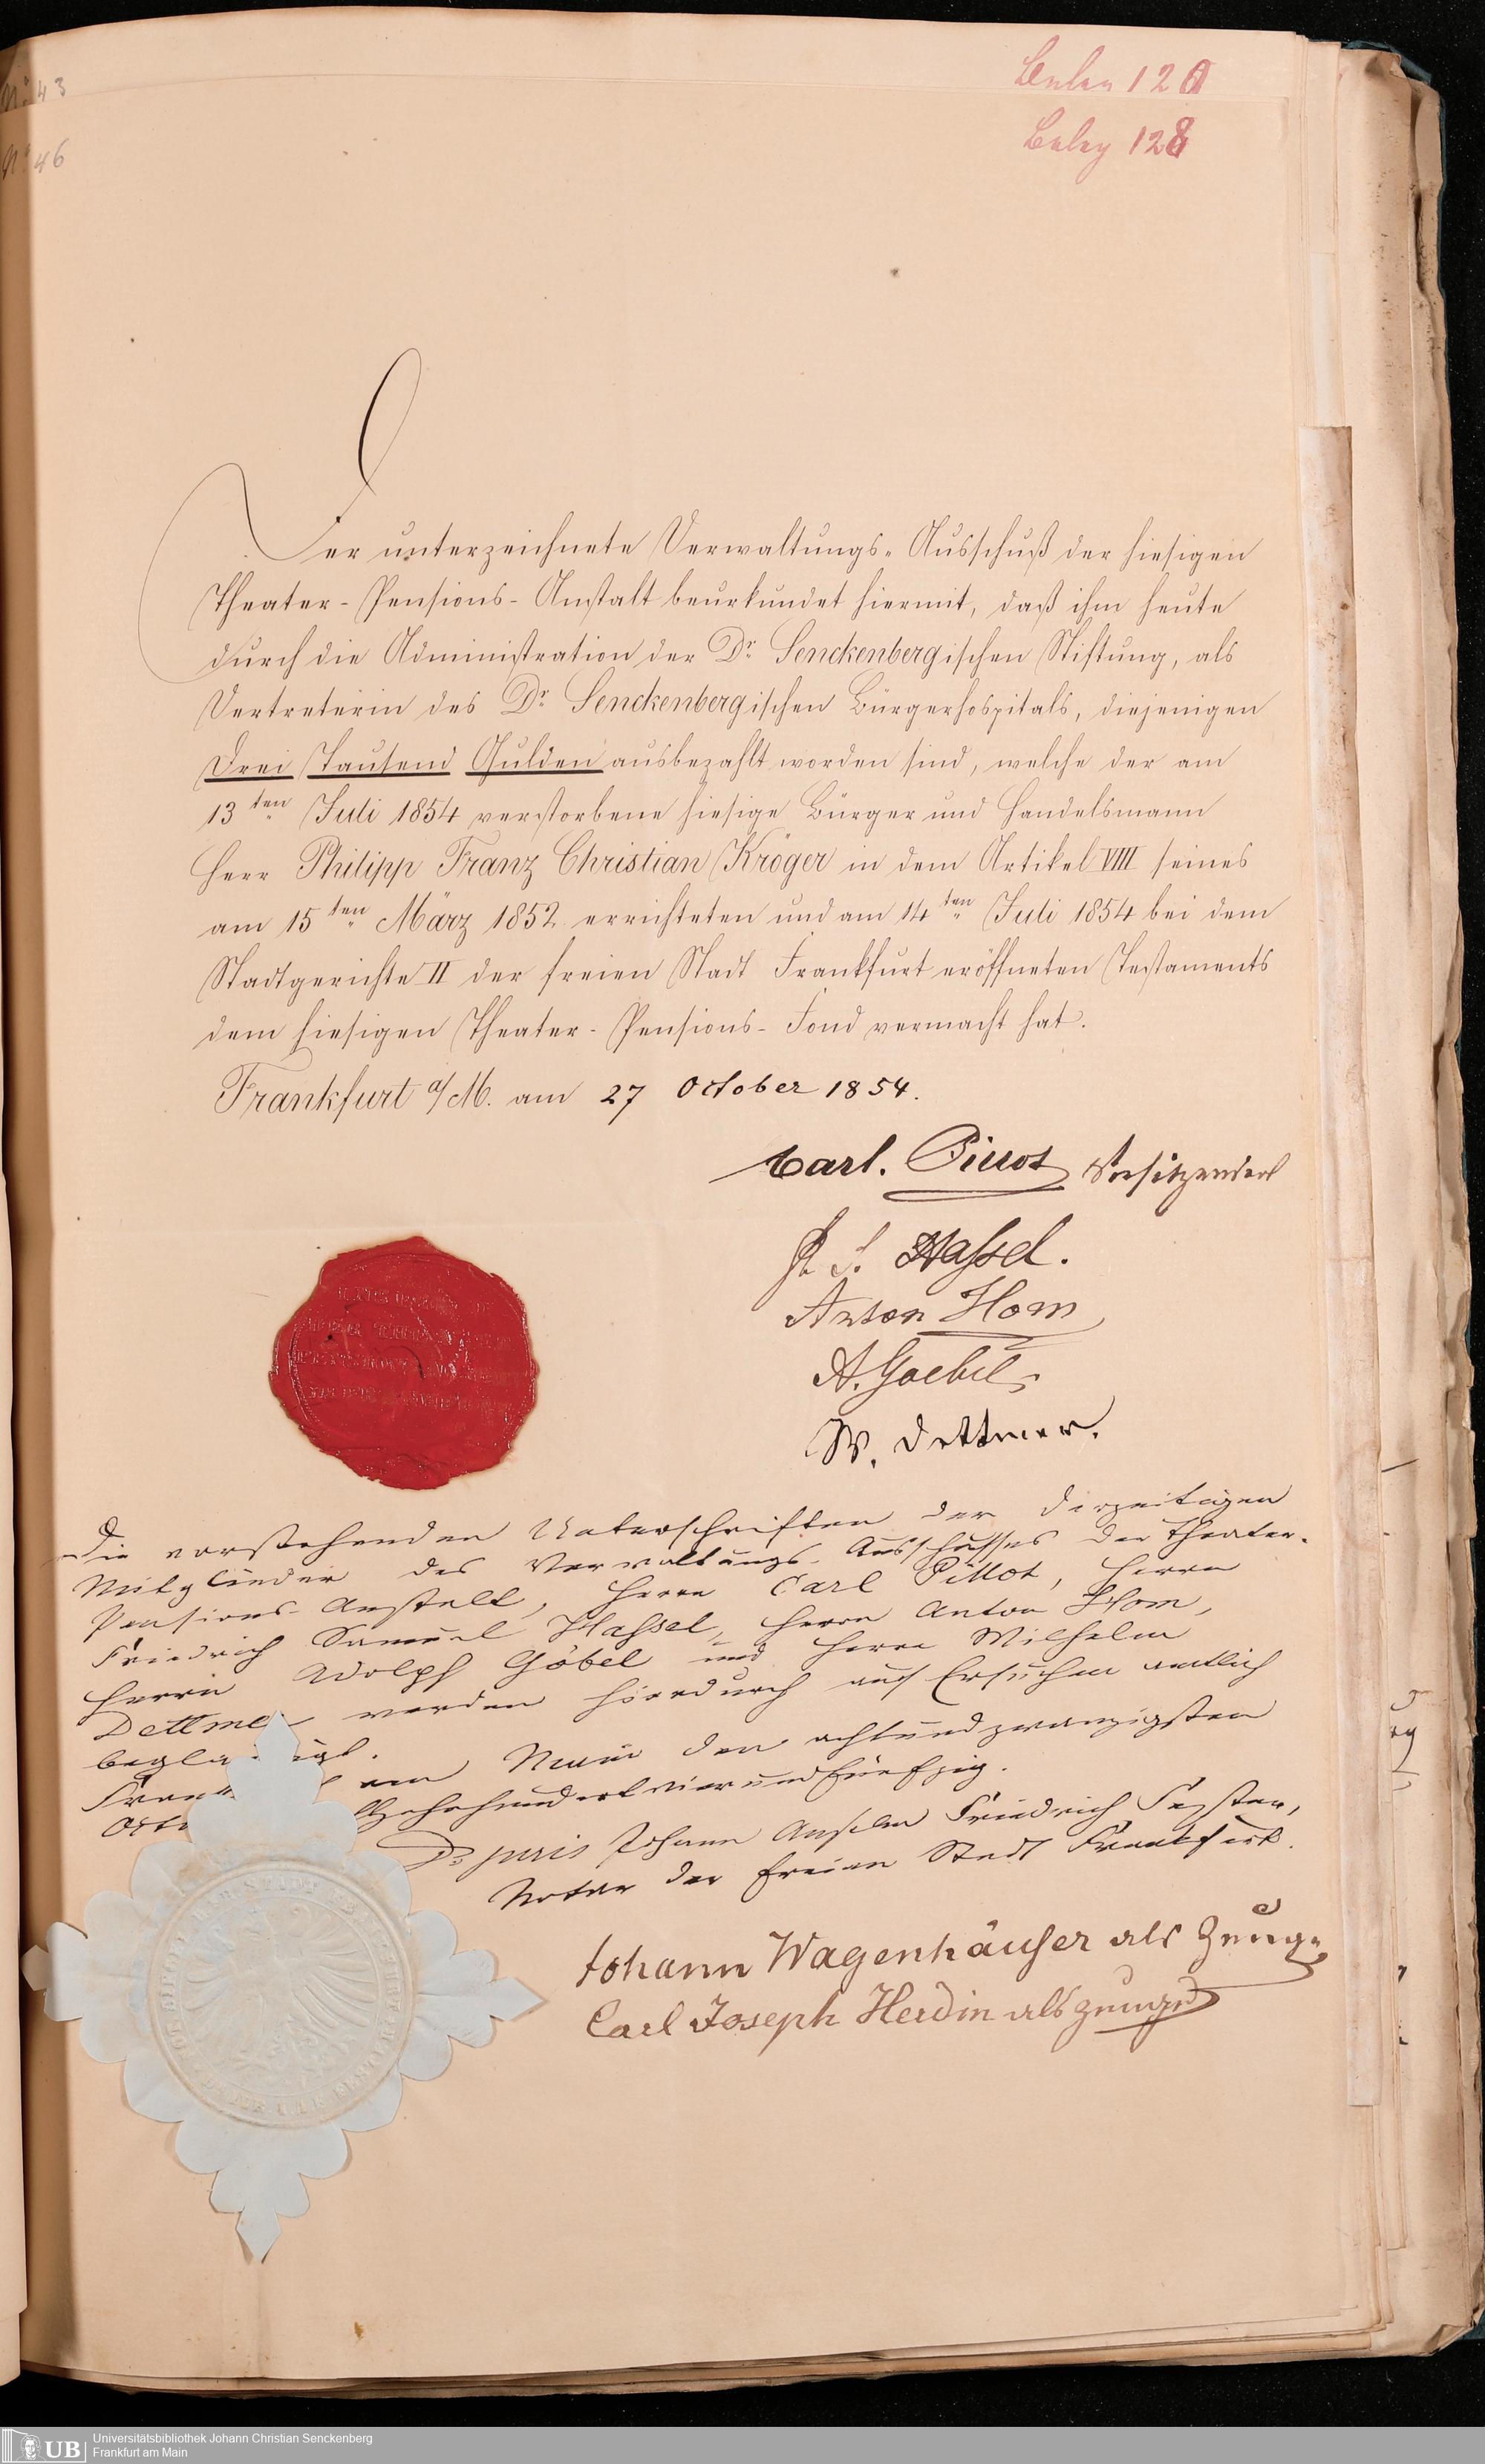 No. 43
No. 46
Beleg 120
Beleg 128
Der unterzeichnete Verwaltungs-Ausschuß der hiesigen
Theater-Pensions-Anstalt beurkundet hiermit, daß ihm heute
durch die Administration der Dr. Senckenbergischen Stiftung, als
Vertreterin des Dr. Senckenbergischen Bürgerhospitals, diejenigen
Drei Tausend Gulden ausbezahlt worden sind, welche der am
13ten Juli 1854 verstorbene hiesige Bürger und Handelsmann
Herr Philipp Franz Christian Kröger in dem Artikel VIII seines
am 15ten März 1852 errichteten und am 14ten Juli 1854 bei dem
Stadtgerichte II der freien Stadt Frankfurt eröffneten Testaments
dem hiesigen Theater-Pensions-Fond vermacht hat.
Frankfurt a/M. am 27 October 1854.
Carl. Pillot Vorsitzender
S. Hassel.
Anton Hom
A. Goebel
W. Dettmer.
Die vorstehenden Unterschriften der derzeitigen
Mitglieder des Verwaltungs-Ausschusses der Theater-
Pensions-Anstalt, Herrn Carl Pillot, Herrn
Friedrich Samuel Hassel, Herrn Anton Hom,
Herrn Adolph Göbel und Herrn Wilhelm
Dettmer werden hierdurch auf Ersuchen amtlich
beglaubigt.
am Main den achtundzwanzigsten
achtzehnhundertvierundfünfzig.
Dr. juris Johann Anselm Friedrich Textor,
Notar der freien Stadt Frankfurt.
Johann Wagenhäuser als Zeuge
Carl Joseph Herdin als Zeuge
UB Universitätsbibliothek Johann Christian Senckenberg
Frankfurt am Main